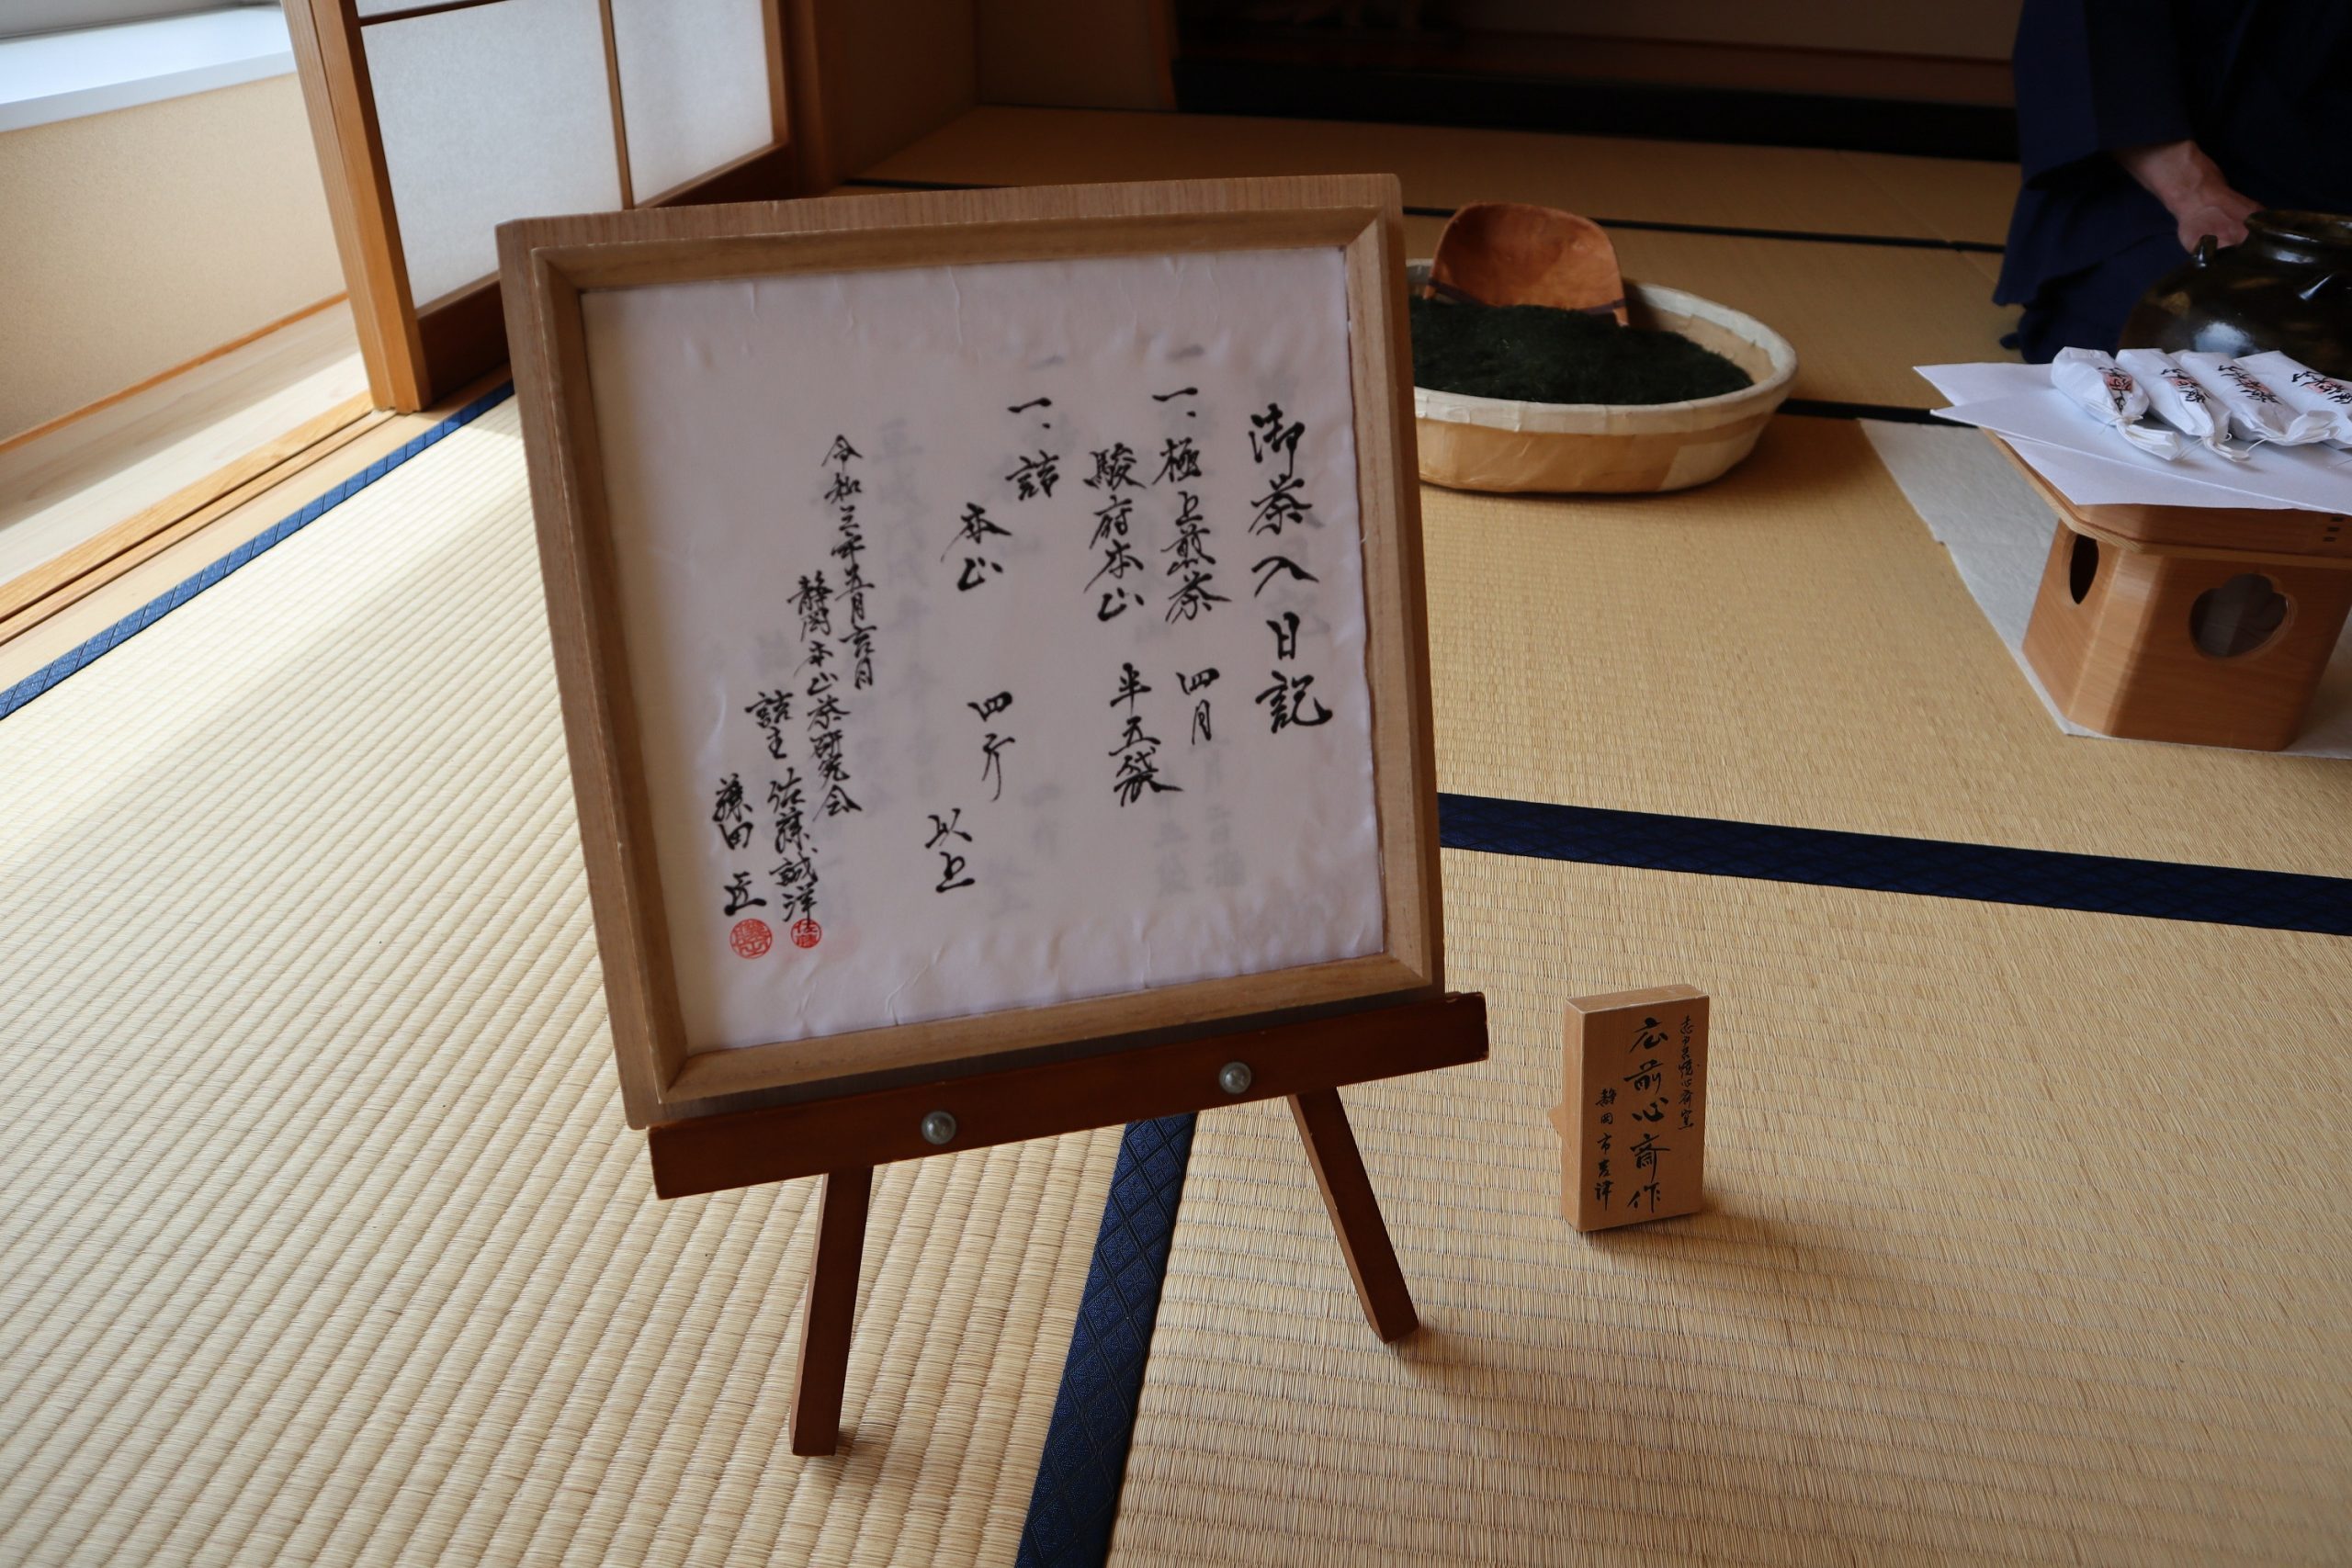 御茶入日記
一、極上煎茶 四月
駿府本山 半五袋
一、詰
本山 四斤
以上
令和三年五月吉日
静岡本山茶研究会
詰主 佐藤誠洋
藤田 匠
佐藤
志戸呂焼心斎窯
広前心斎作
静岡市芝津